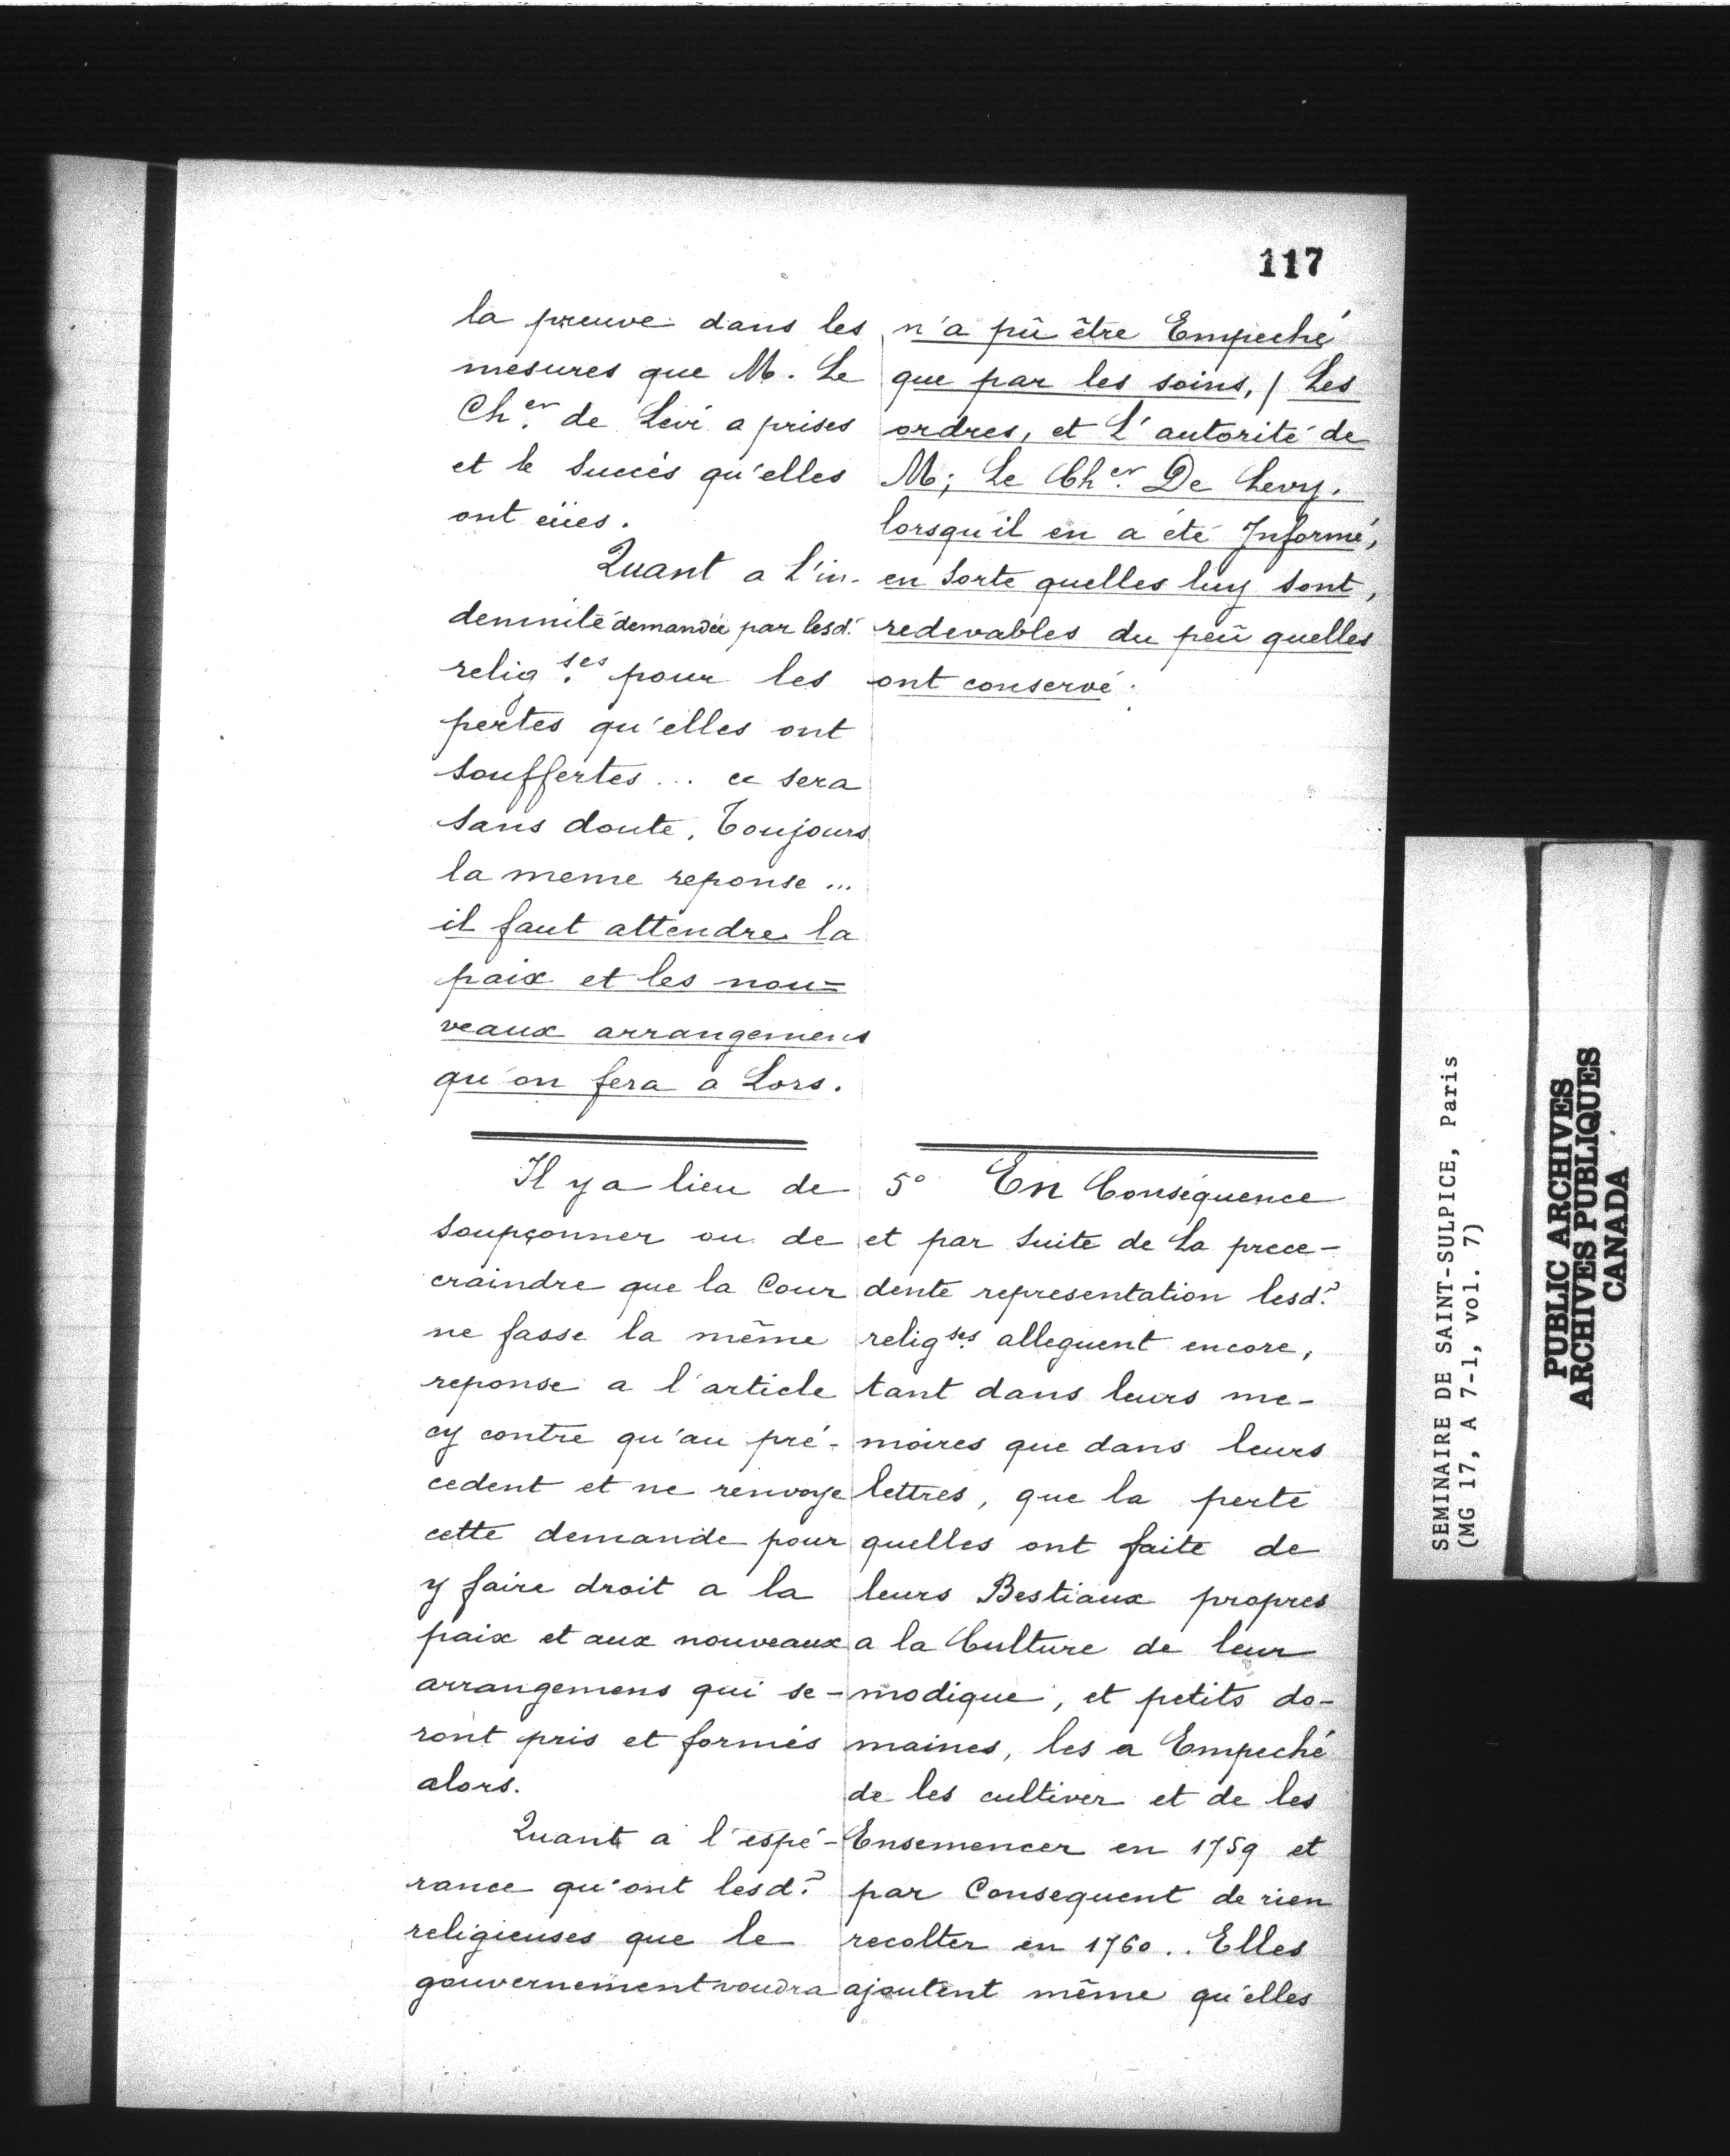 117
la preuve dans les
mesures que M. Le
Ch.er de Levi a prises
et le Succès qu'elles
ont eües.
Quant a L'in-
demnité demandée par lesd.
relig.ses pour les
pertes qu'elles ont
Souffertes... ce sera
Sans doute, Toujours
la meme reponse...
il faut attendre la
paix et les nou=
veaux arrangemens
qu'on fera a Lors.
n'a pû être Empeché
que par les soins, / Les
ordres, et L'autorité de
M; Le Ch.er De Levy.
lorsqu'il en a été Informé,
en Sorte quelles luy Sont,
redevables du peû quelles
ont conservé.
Il y a lieu de
soupçonner ou de
craindre que la Cour
ne fasse la même
reponse a l'article
cy contre qu'au pré-
cedent et ne renvoye
cette demande pour
y faire droit a la
paix et aux nouveaux
arrangemens qui se-
ront pris et formés
alors.
Quant a l'espé-
rance qu'ont lesd.
religieuses que le
gouvernement voudra
5° En Conséquence
et par Suite de La prece-
dente representation lesd.
relig.ses alleguent encore,
tant dans leurs me-
moires que dans leurs
lettres, que la perte
quelles ont faite de
leurs Bestiaux propres
a la Culture de leur
modique, et petits do-
maines, les a Empeché
de les cultiver et de les
Ensemencer en 1759 et
par Consequent de rien
recolter en 1760.. Elles
ajoutent même qu'elles
SEMINAIRE DE SAINT-SULPICE, Paris
(MG 17, A 7-1, vol. 7)
PUBLIC ARCHIVES
ARCHIVES PUBLIQUES
CANADA